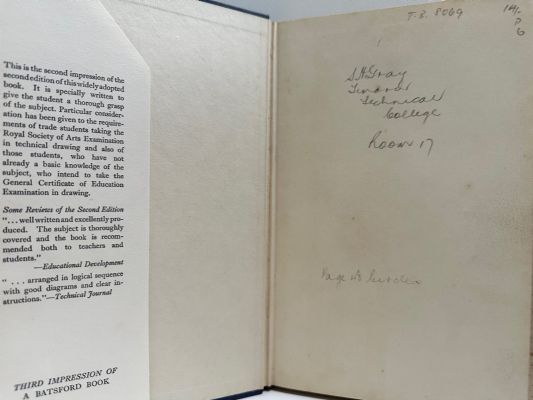 This is the second impression of the
second edition of this widely adopted
book. It is specially written to
give the student a thorough grasp
of the subject. Particular consider-
ation has been given to the require-
ments of trade students taking the
Royal Society of Arts Examination
in technical drawing and also of
those students, who have not
already a basic knowledge of the
subject, who intend to take the
General Certificate of Education
Examination in drawing.
Some Reviews of the Second Edition
"... well written and excellently pro-
duced. The subject is thoroughly
covered and the book is recom-
mended both to teachers and
students."
—Educational Development
" ... arranged in logical sequence
with good diagrams and clear in-
structions."—Technical Journal
THIRD IMPRESSION OF
A BATSFORD BOOK
T.S. 8069
14/-
P
6
S H Gray
Technical
College
Room 17
Page